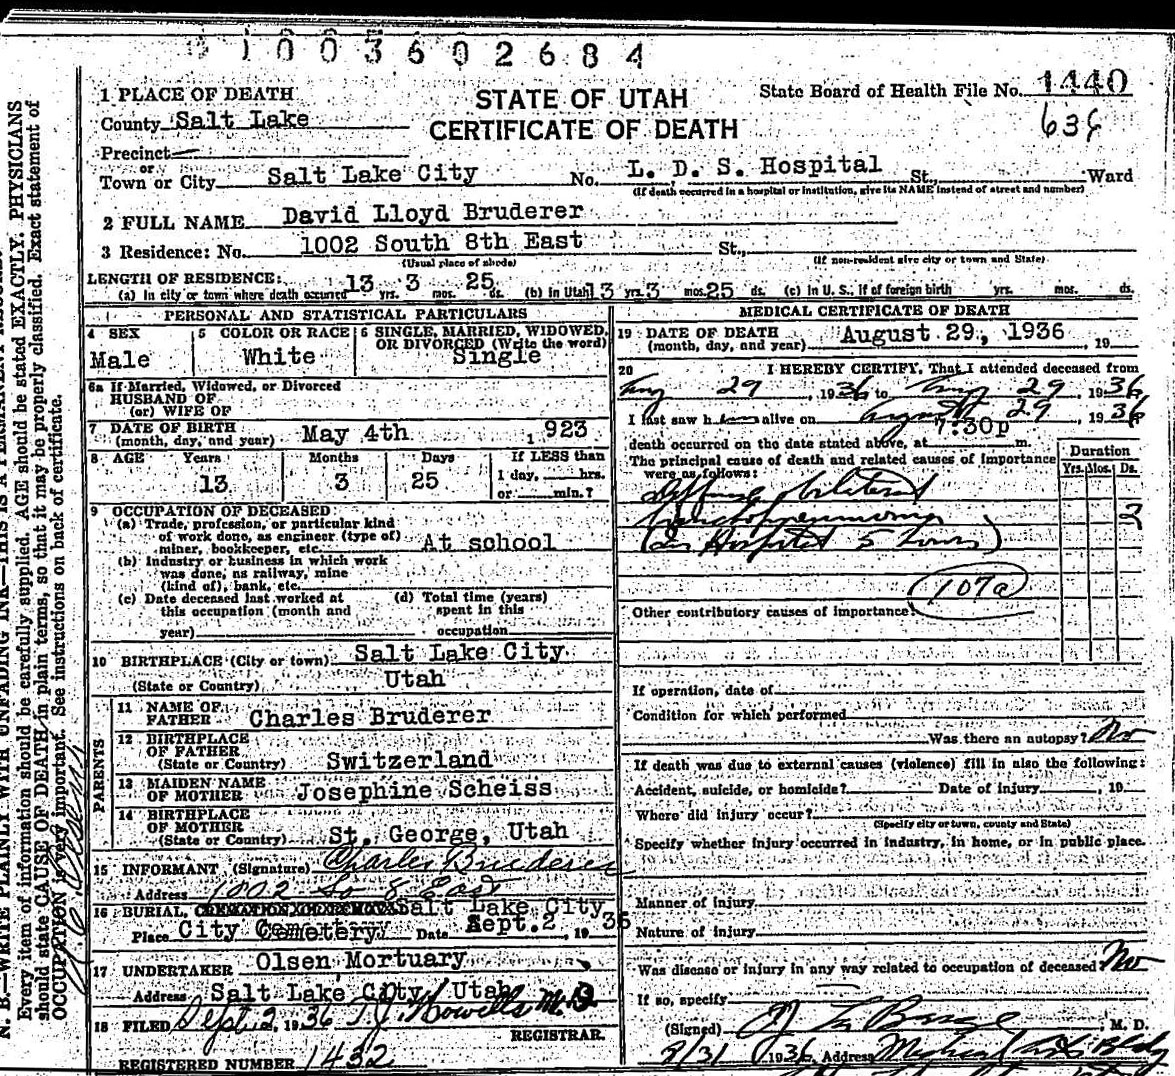 1003602684
1 PLACE OF DEATH
STATE OF UTAH
State Board of Health File No. 1440
County Salt Lake
CERTIFICATE OF DEATH
636
Precinct
or
Town or City Salt Lake City No. L. D. S. Hospital St., Ward
(If death occurred in a hospital or institution, give its NAME instead of street and number)
2 FULL NAME David Lloyd Bruderer
3 Residence: No. 1002 South 8th East St.,
(Usual place of abode) (If non-resident give city or town and State)
LENGTH OF RESIDENCE:
(a) In city or town where death occurred 13 yrs. 3 mos. 25 ds. (b) In Utah 13 yrs 3 mos. 25 ds. (c) In U. S., if of foreign birth yrs. mos. ds.
PERSONAL AND STATISTICAL PARTICULARS
4 SEX
Male
5 COLOR OR RACE
White
6 SINGLE, MARRIED, WIDOWED,
OR DIVORCED (Write the word)
Single
6a If Married, Widowed, or Divorced
HUSBAND OF
(or) WIFE OF
7 DATE OF BIRTH
(month, day, and year) May 4th , 1923
8 AGE Years Months Days If LESS than
1 day, hrs.
or min.?
13 3 25
9 OCCUPATION OF DECEASED
(a) Trade, profession, or particular kind
of work done, as engineer (type of)
miner, bookkeeper, etc. At school
(b) Industry or business in which work
was done, as railway, mine
(kind of), bank, etc.
(c) Date deceased last worked at
this occupation (month and
year)
(d) Total time (years)
spent in this
occupation
10 BIRTHPLACE (City or town) Salt Lake City
(State or Country) Utah
PARENTS
11 NAME OF
FATHER Charles Bruderer
12 BIRTHPLACE
OF FATHER
(State or Country) Switzerland
13 MAIDEN NAME
OF MOTHER Josephine Scheiss
14 BIRTHPLACE
OF MOTHER
(State or Country) St. George, Utah
15 INFORMANT (Signature) Charles Bruderer
Address 1002 So 8 East
16 BURIAL, CREMATION OR REMOVAL Salt Lake City
Place City Cemetery Date Sept. 2, 1936
17 UNDERTAKER Olsen Mortuary
Address Salt Lake City, Utah
18 FILED Sept 2, 1936 T. J. Howells M.D.
REGISTRAR.
REGISTERED NUMBER 1432
MEDICAL CERTIFICATE OF DEATH
19 DATE OF DEATH
(month, day, and year) August 29, 1936 , 19
20 I HEREBY CERTIFY, That I attended deceased from
Aug 29, 1936 to Aug 29, 1936
I last saw him alive on August 29, 1936
death occurred on the date stated above, at 7:30p m.
The principal cause of death and related causes of importance
were as follows:
Duration
Yrs. Mos. Ds.
Diffuse bilateral
bronchopneumonia 3
(In Hospital 5 hours)
107a
Other contributory causes of importance:
If operation, date of
Condition for which performed
Was there an autopsy? No
If death was due to external causes (violence) fill in also the following:
Accident, suicide, or homicide? Date of injury , 19
Where did injury occur?
(Specify city or town, county and State)
Specify whether injury occurred in industry, in home, or in public place.
Manner of injury
Nature of injury
Was disease or injury in any way related to occupation of deceased? No
If so, specify
(Signed) M. D.
8/31 1936 Address Medical Arts Bldg
N. B.—WRITE PLAINLY WITH UNFADING INK—THIS IS A PERMANENT RECORD
Every item of information should be carefully supplied. AGE should be stated EXACTLY. PHYSICIANS
should state CAUSE OF DEATH in plain terms, so that it may be properly classified. Exact statement of
OCCUPATION is very important. See instructions on back of certificate.